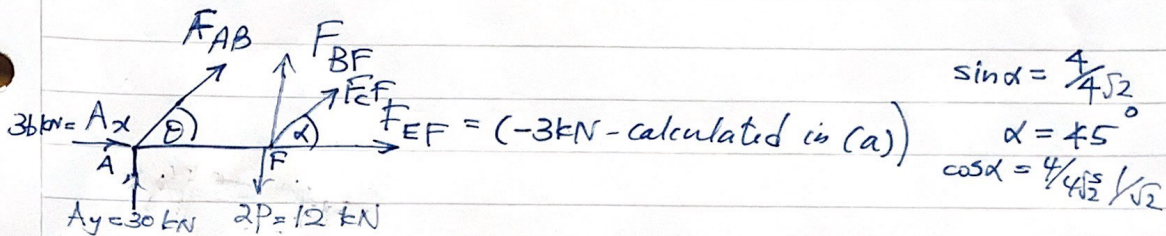 F_AB F_BF
F_CF
36kN = Ax θ α F_EF = (-3kN - calculated in (a))
A F
Ay = 30 kN 2P = 12 kN
sin α = 4/4√2
α = 45°
cos α = 4/4√2 1/√2